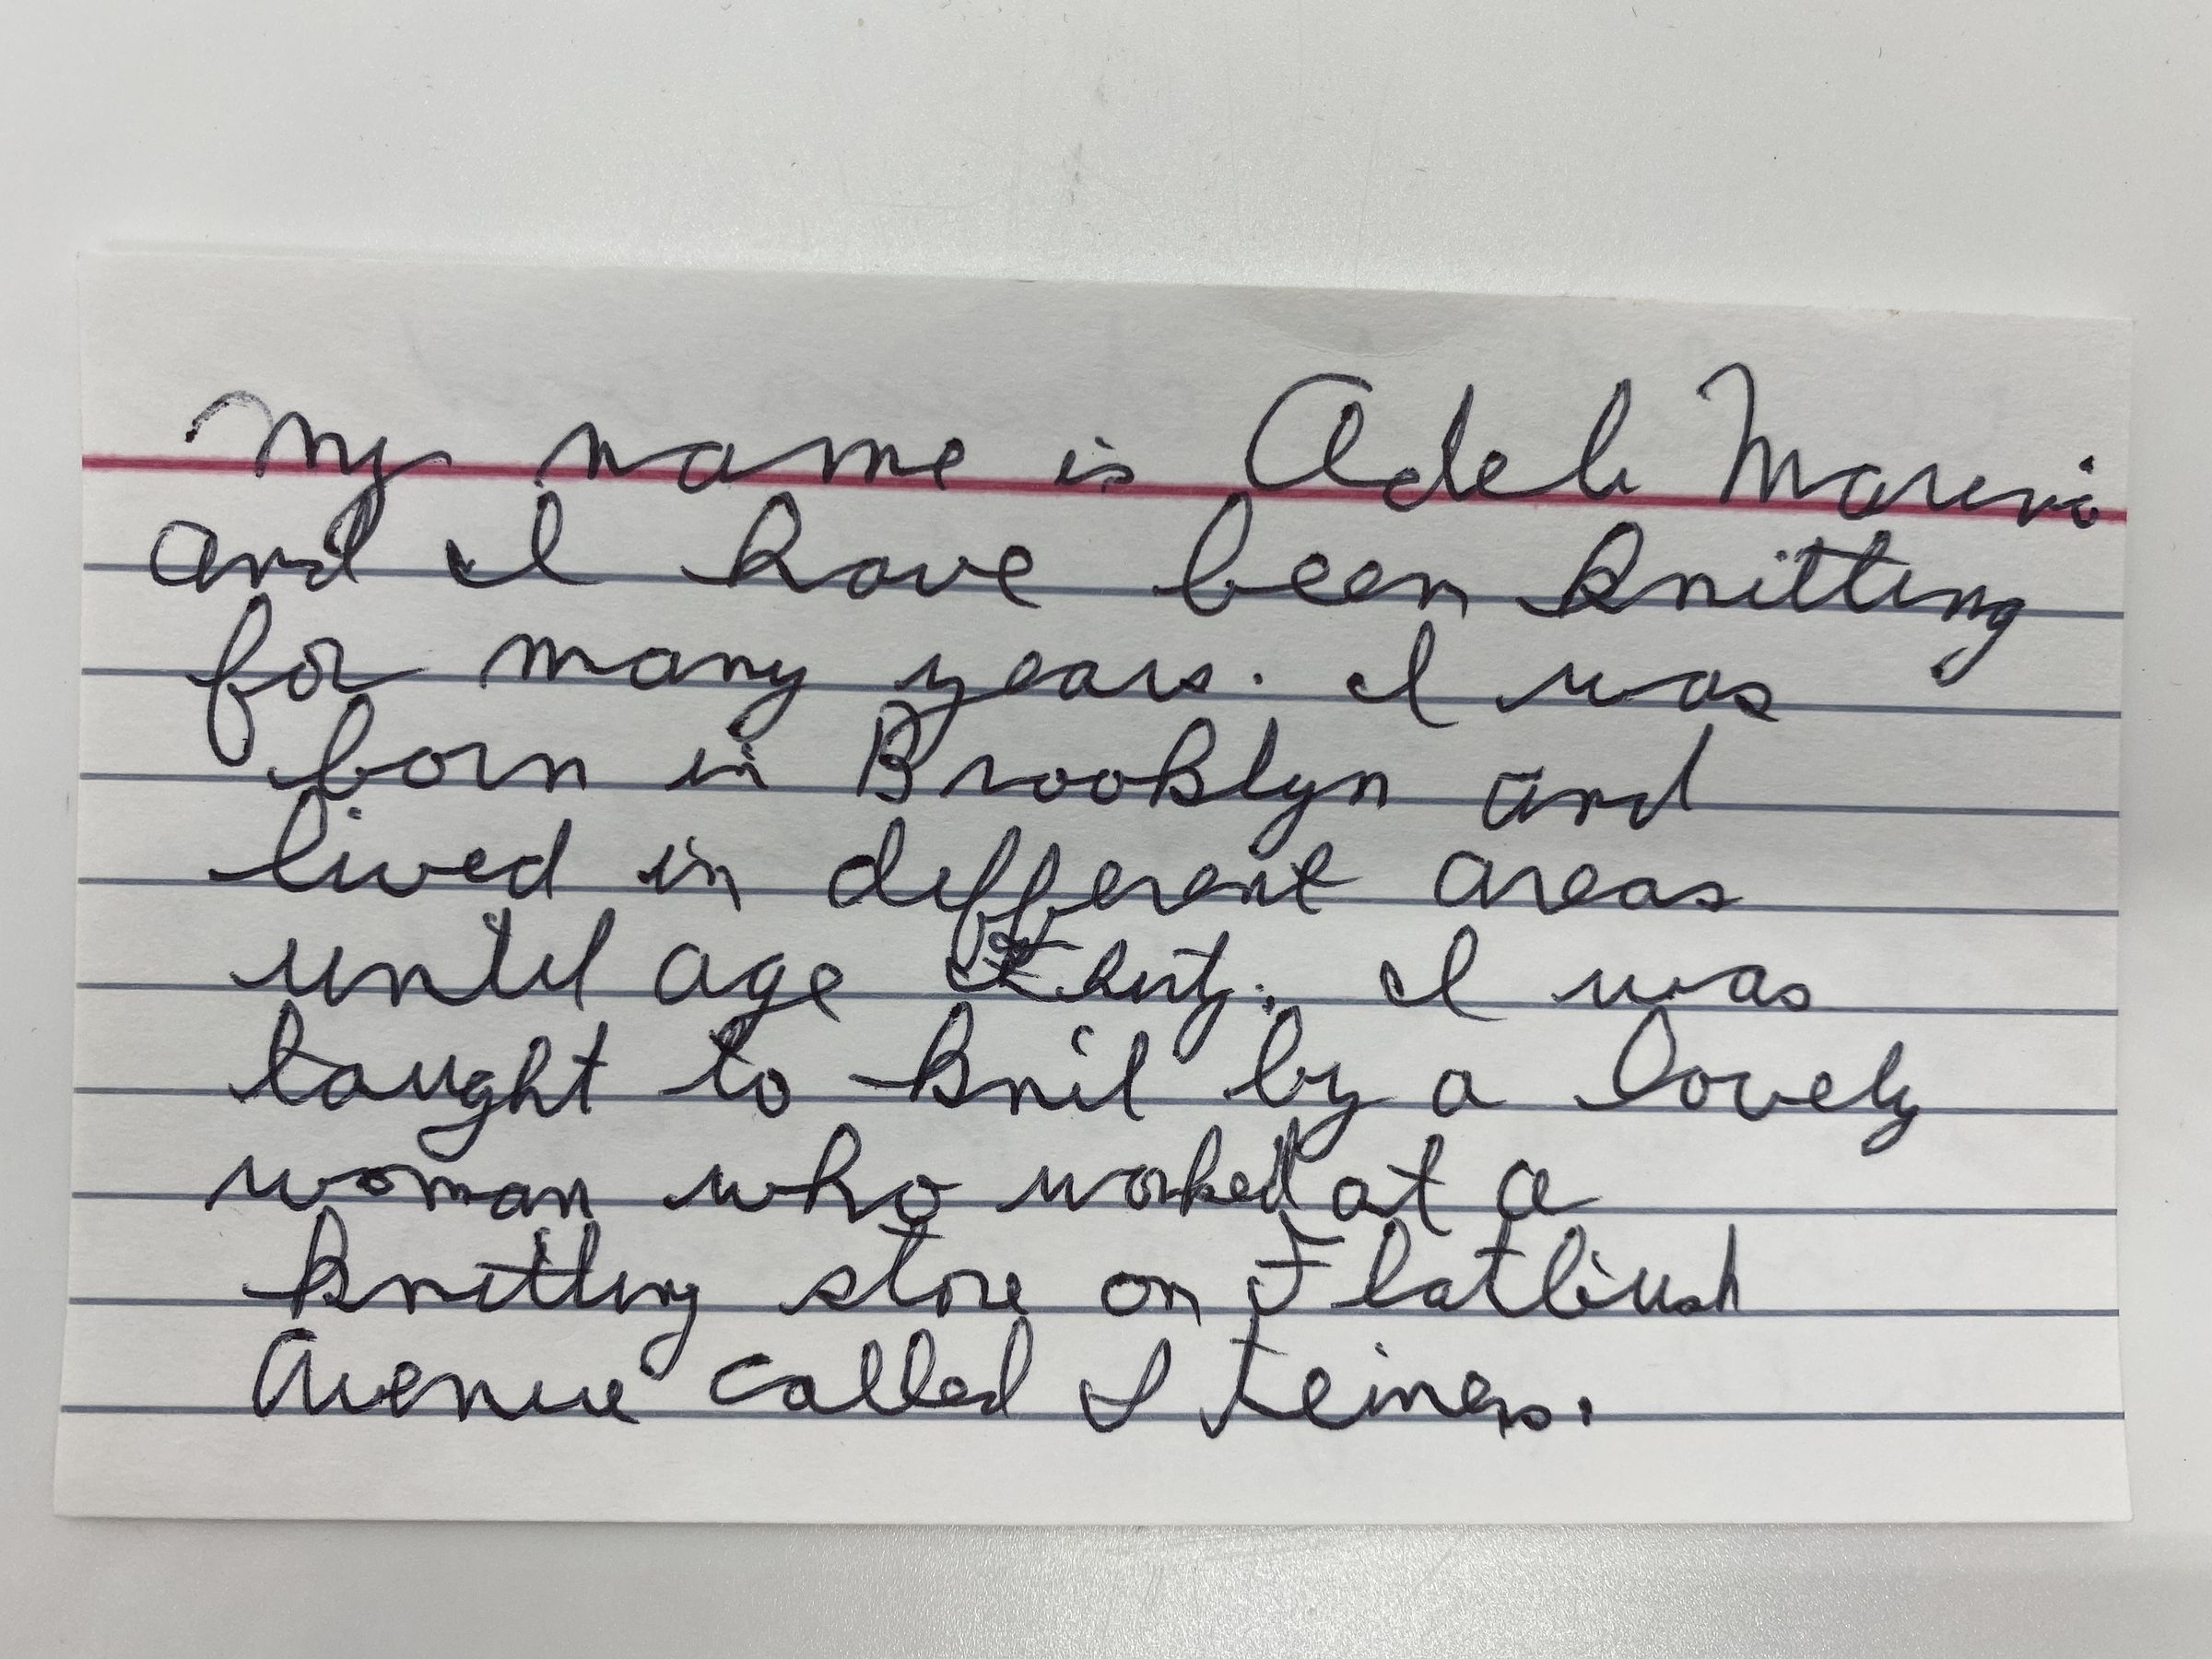 My name is Adele
and I have been knitting
for many years. I was
born in Brooklyn and
lived in different areas
until age thirty. I was
taught to knit by a lovely
woman who worked at a
knitting store on Flatbush
Avenue called Steiners.